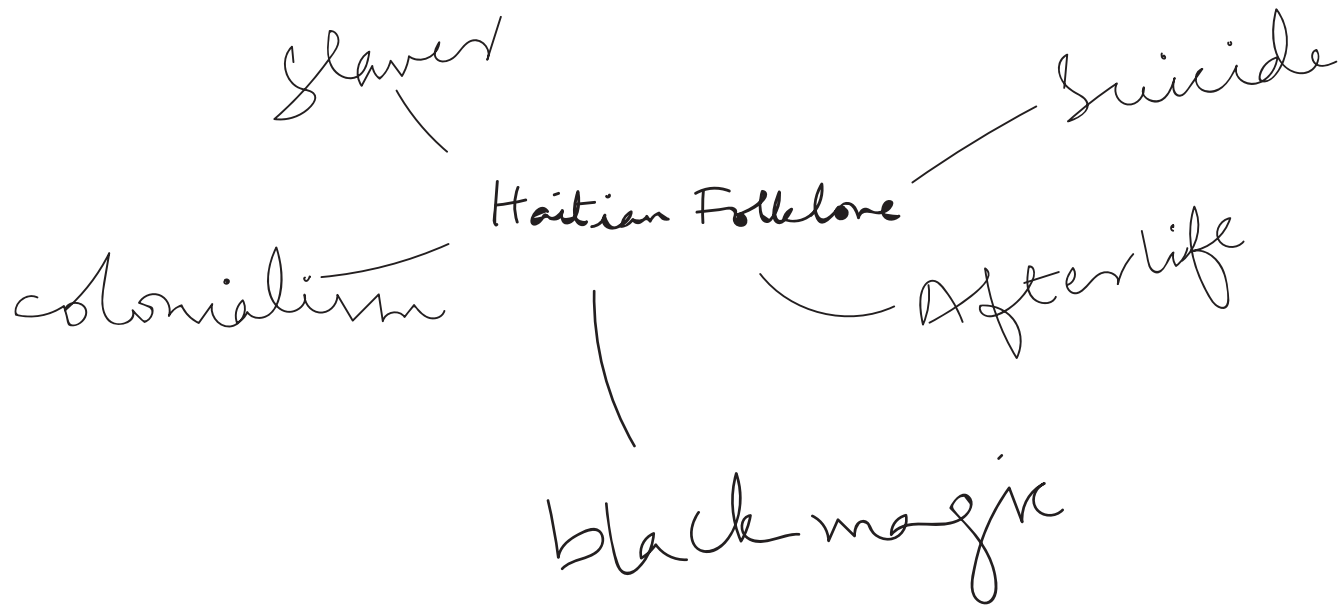 Slavery
Suicide
Haitian Folklore
Colonialism
Afterlife
black magic